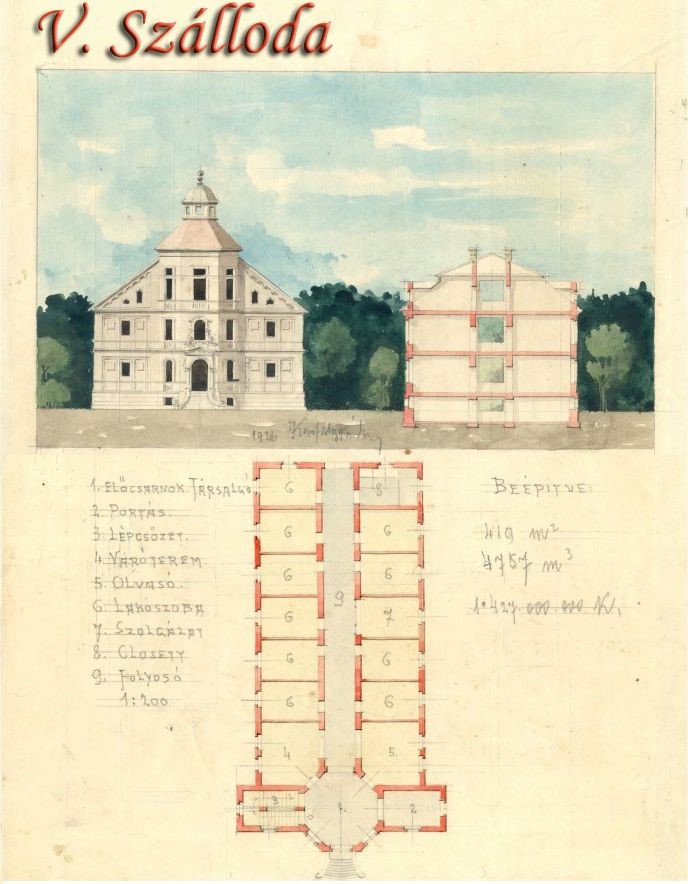 V. Szálloda
1926
1. ELŐCSARNOK TÁRSALGÓ
2. PORTÁS.
3 LÉPCSŐZET.
4 VÁRÓTEREM
5 OLVASÓ.
6 LAKÓSZOBA
7 SZOLGÁLAT
8 CLOSETT
9. FOLYOSÓ
1:200
BEÉPITVE:
419 m²
4757 m³
1·427.000.000 K.
6 8
6 6
6 6
9
6 7
6 6
6 6
4 5.
3 1. 2